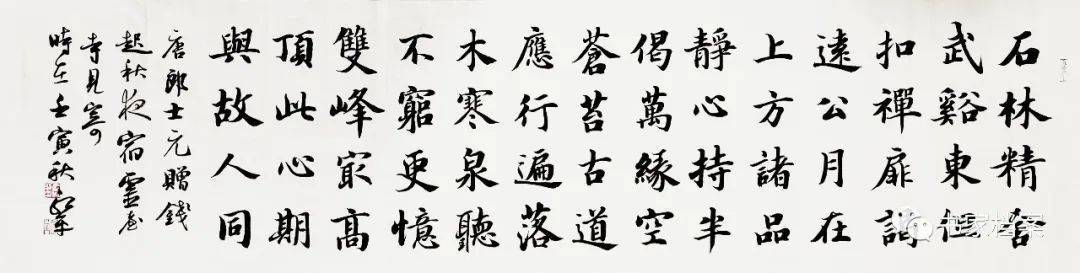 石林精舍
武谿東夜
扣禪扉謁
遠公月在
上方諸品
靜心持半
偈萬緣空
蒼苔古道
應行遍落
木寒泉聽
不窮更憶
雙峰冣高
頂此心期
與故人同
唐郎士元贈錢
起秋夜宿靈台
寺見寄
時在壬寅秋
书家档案